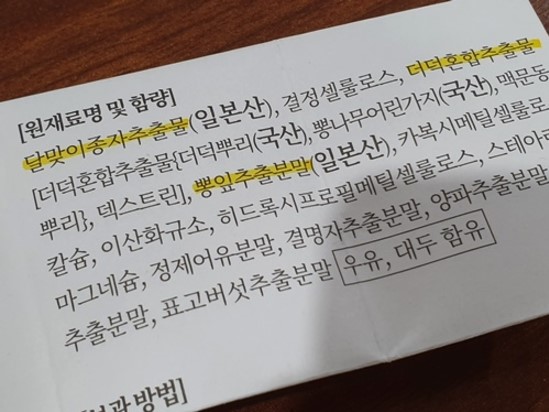 [원재료명 및 함량]
달맞이종자추출물(일본산), 결정셀룰로스, 더덕혼합추출물
[더덕혼합추출물{더덕뿌리(국산), 뽕나무어린가지(국산), 맥문동
뿌리}, 덱스트린], 뽕잎추출분말(일본산), 카복시메틸셀룰로
칼슘, 이산화규소, 히드록시프로필메틸셀룰로스, 스테아
마그네슘, 정제어유분말, 결명자추출분말, 양파추출분말
추출분말, 표고버섯추출분말 우유, 대두 함유
방법]